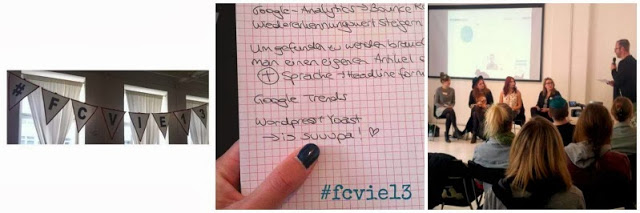 #FCVIE13
Google-Analytics → Bounce
Wiedererkennungswert Steigern
Um gefunden zu werden
man einen eigenen Artikel
+ Sprache → Headline
Google Trends
Wordpress Yoast
→ is suuupa! ♡
#fcvie13